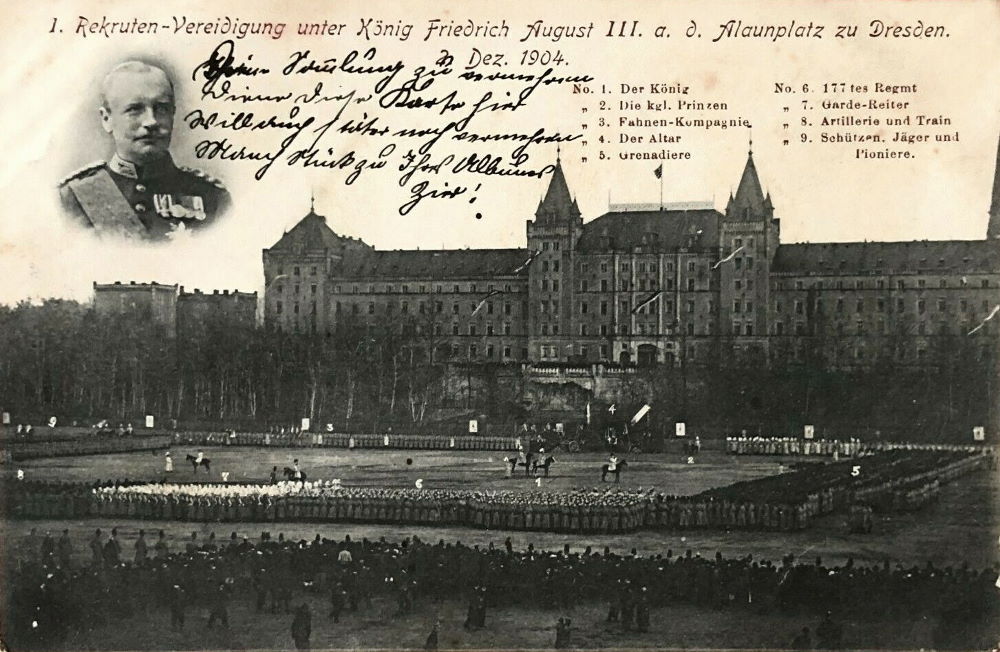 1. Rekruten-Vereidigung unter König Friedrich August III. a. d. Alaunplatz zu Dresden.
Dez. 1904.
Sammlung zu vermehren
Diene diese Karte hier
Will auch später noch vermehren
Manch Stück zu Ihres Albums
Zier!
No. 1. Der König
„ 2. Die kgl. Prinzen
„ 3. Fahnen-Kompagnie
„ 4. Der Altar
„ 5. Grenadiere
No. 6. 177 tes Regmt
„ 7. Garde-Reiter
„ 8. Artillerie und Train
„ 9. Schützen, Jäger und
Pioniere.
9
3
4
2
8
7
6
1
5